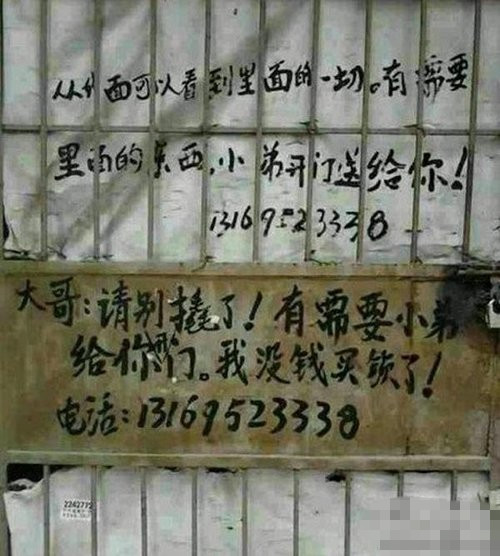 从外面可以看到里面的一切。有需要
里面的东西,小弟开门送给你!
13169523338
大哥:请别撬了!有需要小弟
给你开门。我没钱买锁了!
电话:13169523338
2242772